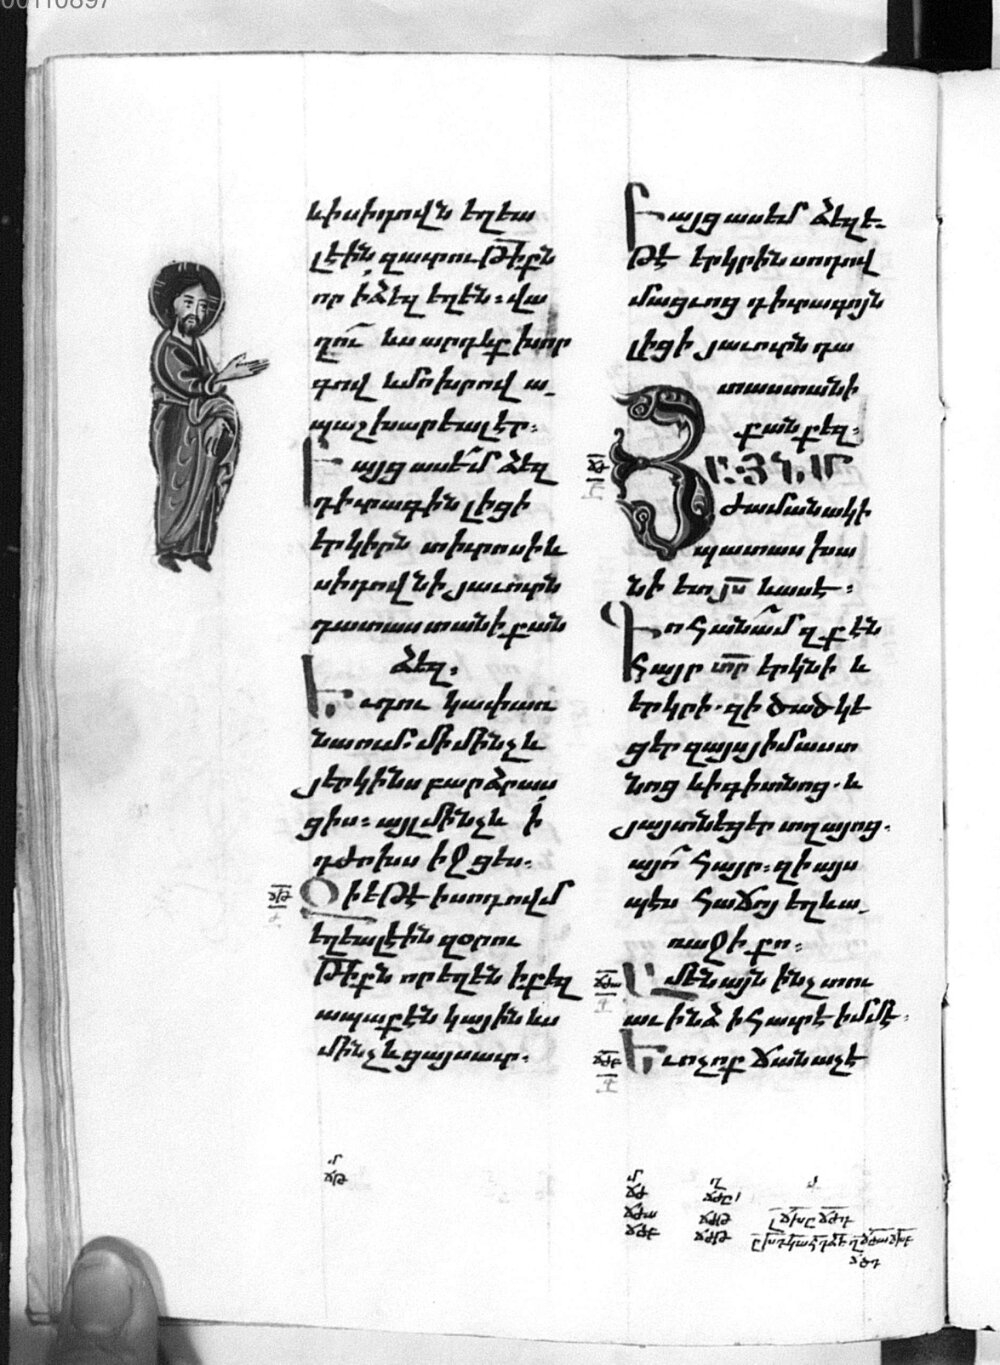 և ի սիդովն եղեա
լ էին զաւրութիքն
որ ի ձեզ եղեն. վա
ղու ևս արդեւք խոր
գով և մոխրով ա
պաշխարեալ էր։
Բայց ասեմ ձեզ
դիւրագին լիցի
երկիրն տիւրոսի և
սիդովնի յաւուրն
դատաստանի քան
ձեզ։
Եւ դու կափառ
նաում. մի մինչև
յերկինս բարձրաս
ցիս. այլ մինչև ի
դժոխս իջցես.
Զի եթէ ի սոդովմ
եղեալ էին զօրու
թիքն որ եղեն ի քեզ
ապաքէն կային ևս
մինչև ցայսաւր.
Բայց ասեմ ձեզ ե
թէ երկրին սոդով
մացւոց դիւրագոյն
լիցի յաւուրն դա
տաստանի
քան քեզ։
ՅԱՅՆՄ
ժամանակի
պատասխա
նի ետ յս և ասէ.
Գոհանամ զքէն
հայր տր երկնի և
երկրի. զի ծածկե
ցեր զայս յիմաստ
նոց և ի գիտնոց. և
յայտնեցեր տղայոց.
այո հայր. զի այս
պէս հաճոյ եղև ա
ռաջի քո։
Ամենայն ինչ տու
աւ ինձ ի հաւրէ իմմէ.
Եւ ոչ ոք ճանաչէ